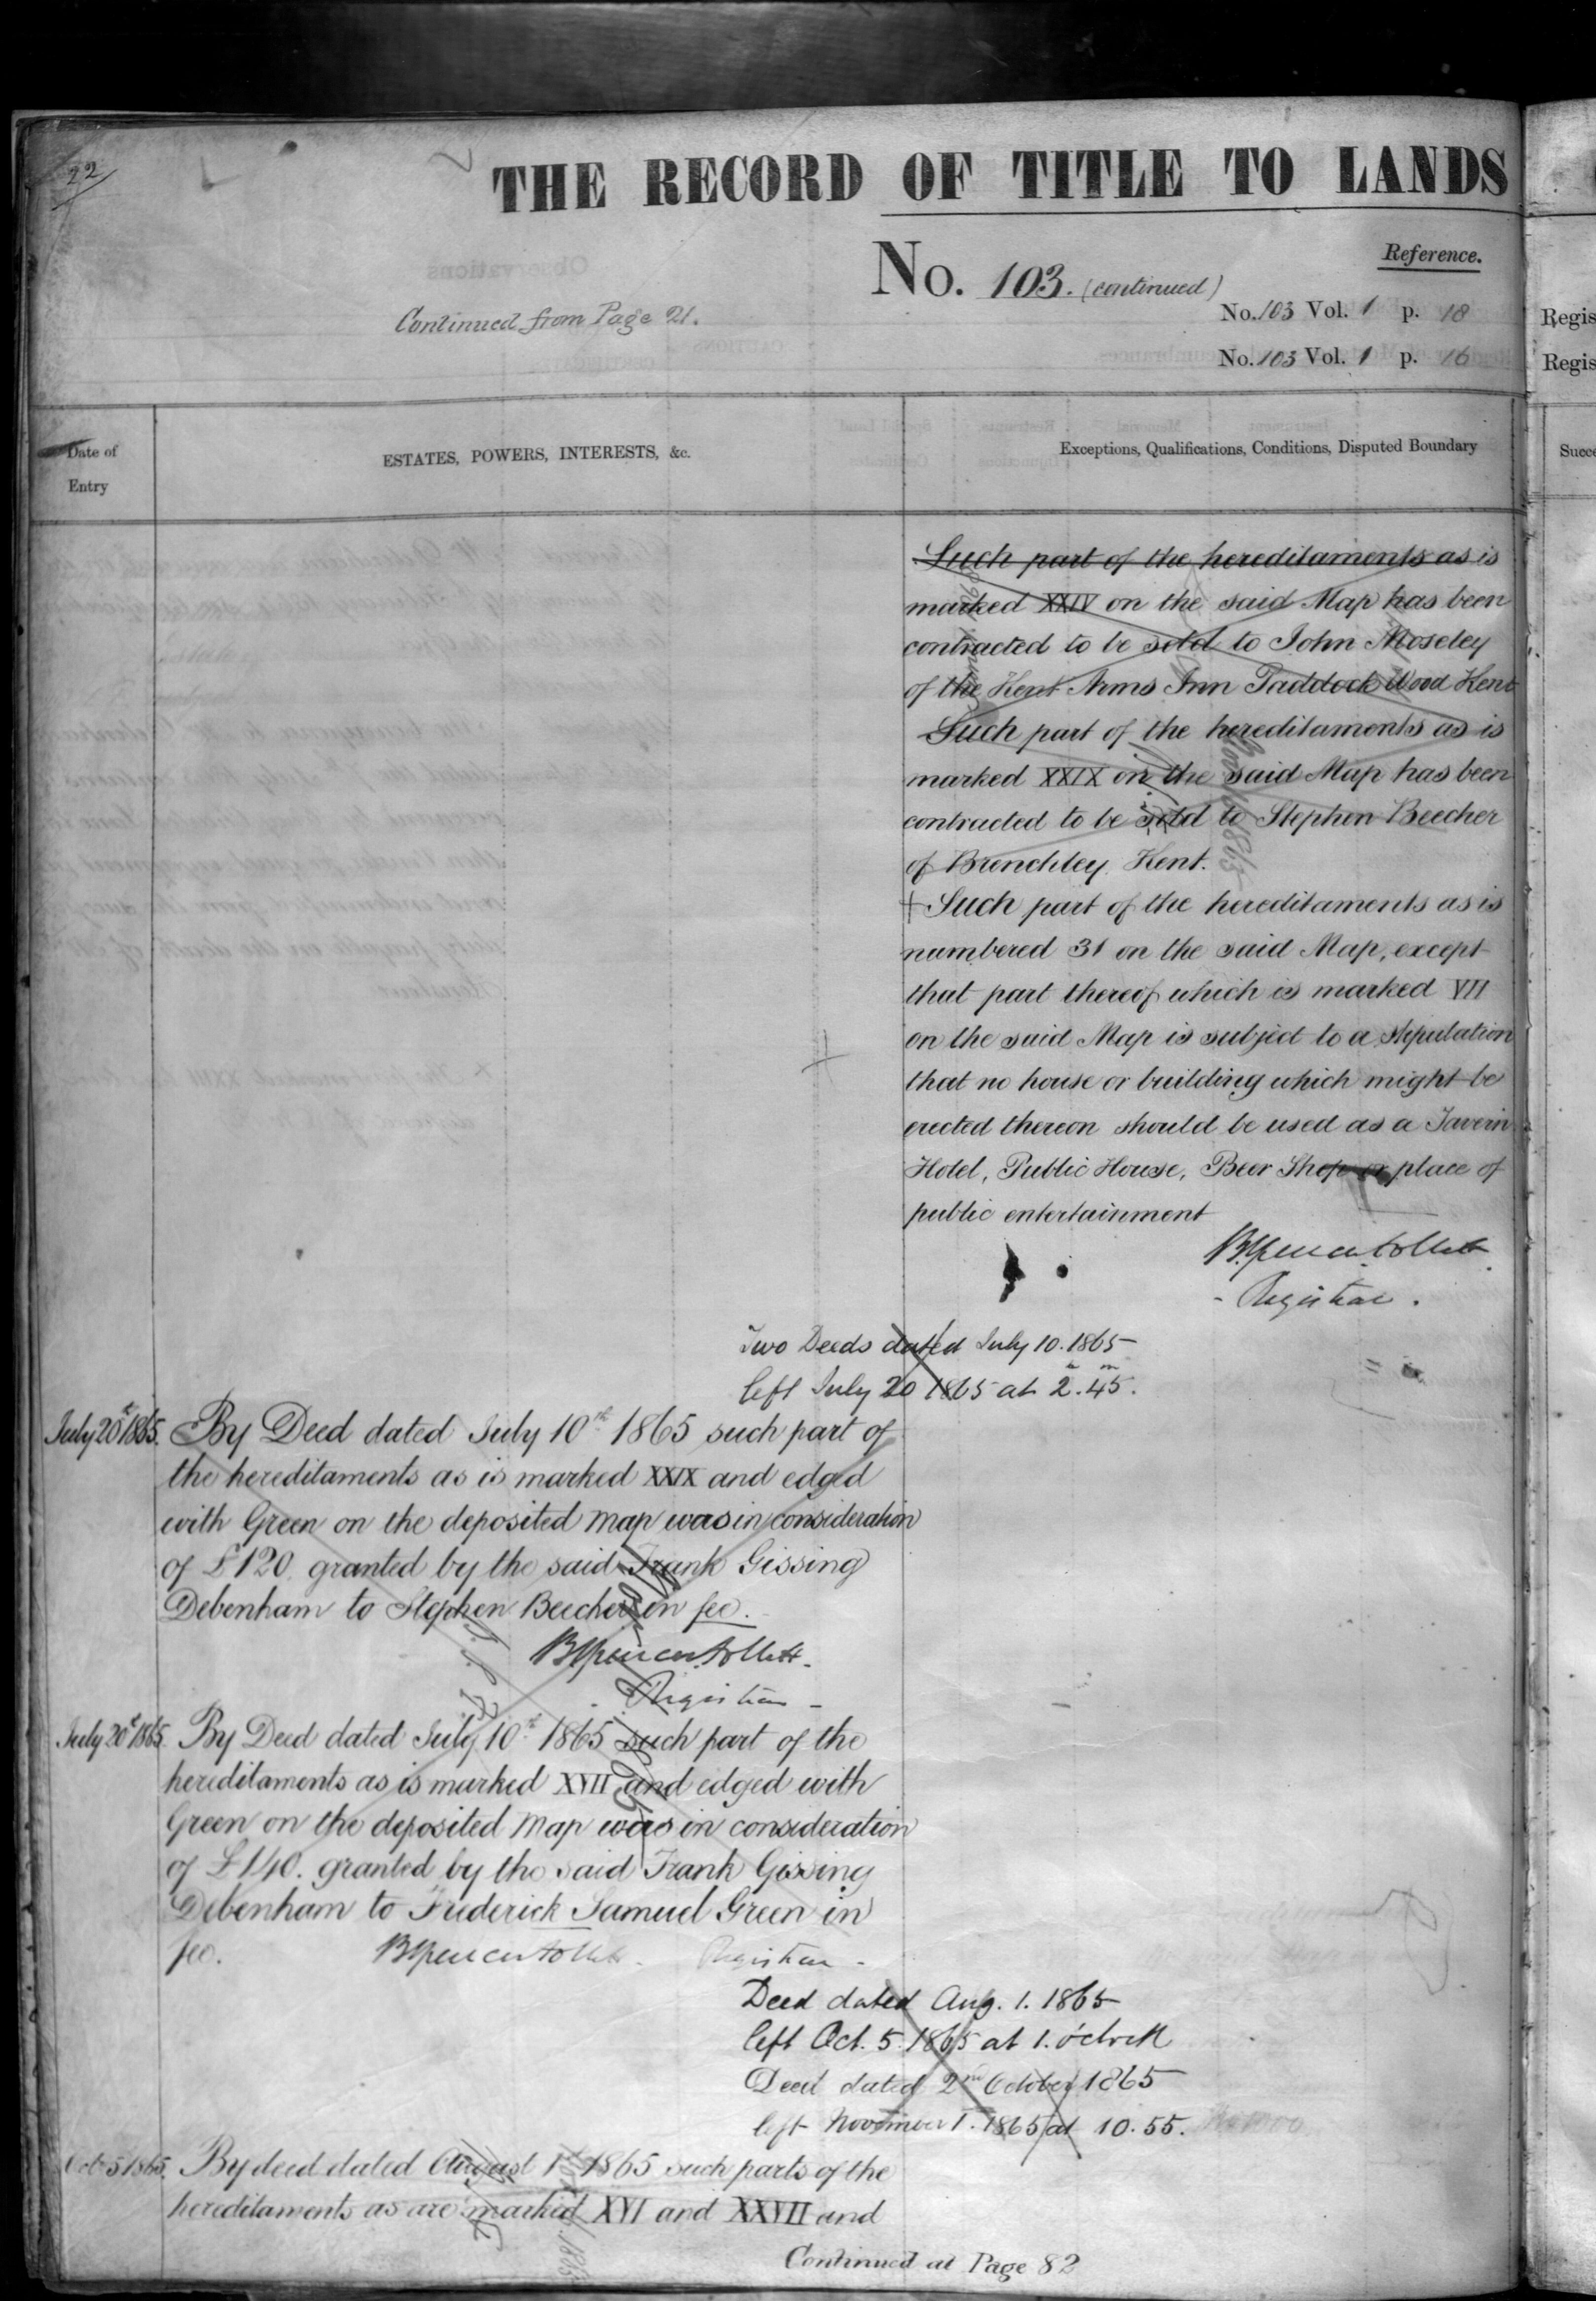 22
THE RECORD OF TITLE TO LANDS
No. 103. (continued)
Reference.
Continued from Page 21.
No. 103 Vol. 1 p. 18
No. 103 Vol. 1 p. 16
Regis
Regis
Date of
Entry
ESTATES, POWERS, INTERESTS, &c.
Exceptions, Qualifications, Conditions, Disputed Boundary
Succe
Such part of the hereditaments as is
marked XXIV on the said Map has been
contracted to be sold to John Moseley
of the Kent Arms Inn Paddock Wood Kent
Such part of the hereditaments as is
marked XXIX on the said Map has been
contracted to be sold to Stephen Beecher
of Brenchley, Kent.
+ Such part of the hereditaments as is
numbered 31 on the said Map, except
that part thereof which is marked VII
on the said Map is subject to a stipulation
that no house or building which might be
erected thereon should be used as a Tavern
Hotel, Public House, Beer Shop or place of
public entertainment
BSpencer Follett
- Registrar.
Two Deeds dated July 10. 1865
left July 20 1865 at 2h. 45m.
July 20th 1865. By Deed dated July 10th 1865 such part of
the hereditaments as is marked XXIX and edged
with Green on the deposited map was in consideration
of £120. granted by the said Frank Gissing
Debenham to Stephen Beecher in fee.
BSpencer Follett.
- Registrar -
July 20th 1865. By Deed dated July 10th 1865 such part of the
hereditaments as is marked XVII and edged with
Green on the deposited map was in consideration
of £140. granted by the said Frank Gissing
Debenham to Frederick Samuel Green in
fee. BSpencer Follett. Registrar -
Deed dated Aug. 1. 1865
left Oct. 5. 1865 at 1. o'clock
Deed dated 2nd October 1865
left November 1. 1865 at 10.55.
Oct 5 1865. By deed dated August 1st 1865 such parts of the
hereditaments as are marked XVI and XXVII and
Continued at Page 82